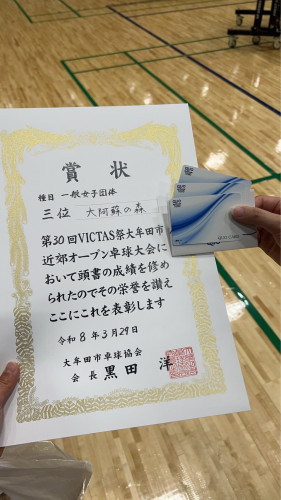 賞状
種目 一般女子団体
三位 大阿蘇の森
第30回VICTAS祭大牟田市
近郊オープン卓球大会に
おいて頭書の成績を修め
られたのでその栄誉を讃え
ここにこれを表彰します
令和8年3月29日
大牟田市卓球協会
会長 黒田 洋
QUO CARD